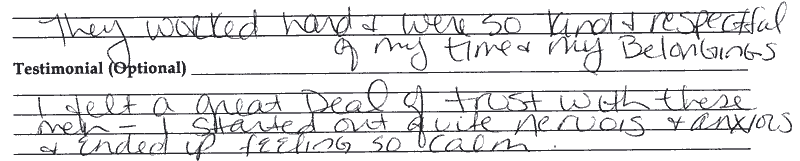 They worked hard & were so kind & respectful
of my time & my Belongings
Testimonial (Optional)
I felt a great Deal of trust with these
men - I started out quite nervous & anxious
& ended up feeling so calm.